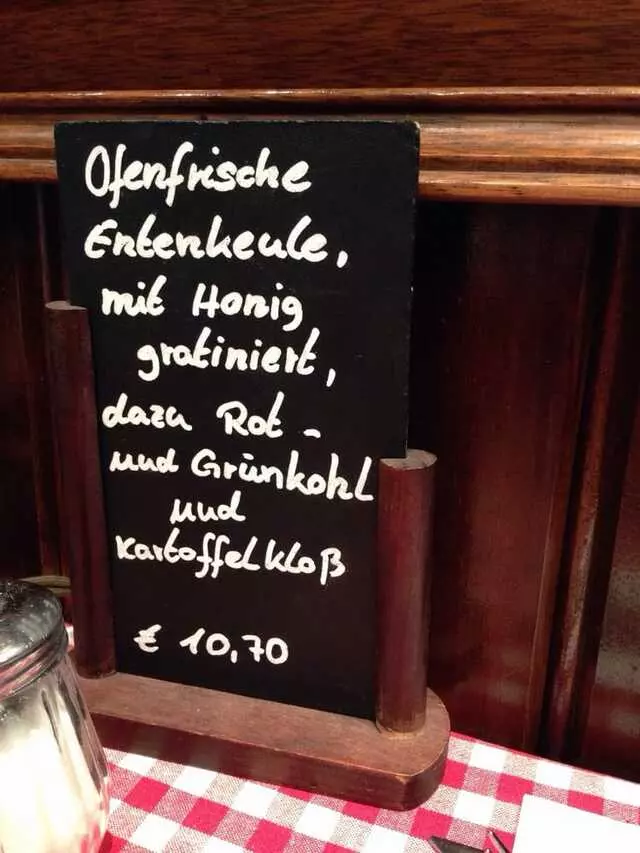 Ofenfrische
Entenkeule,
mit Honig
gratiniert,
dazu Rot-
und Grünkohl
und
Kartoffelkloß
€ 10,70